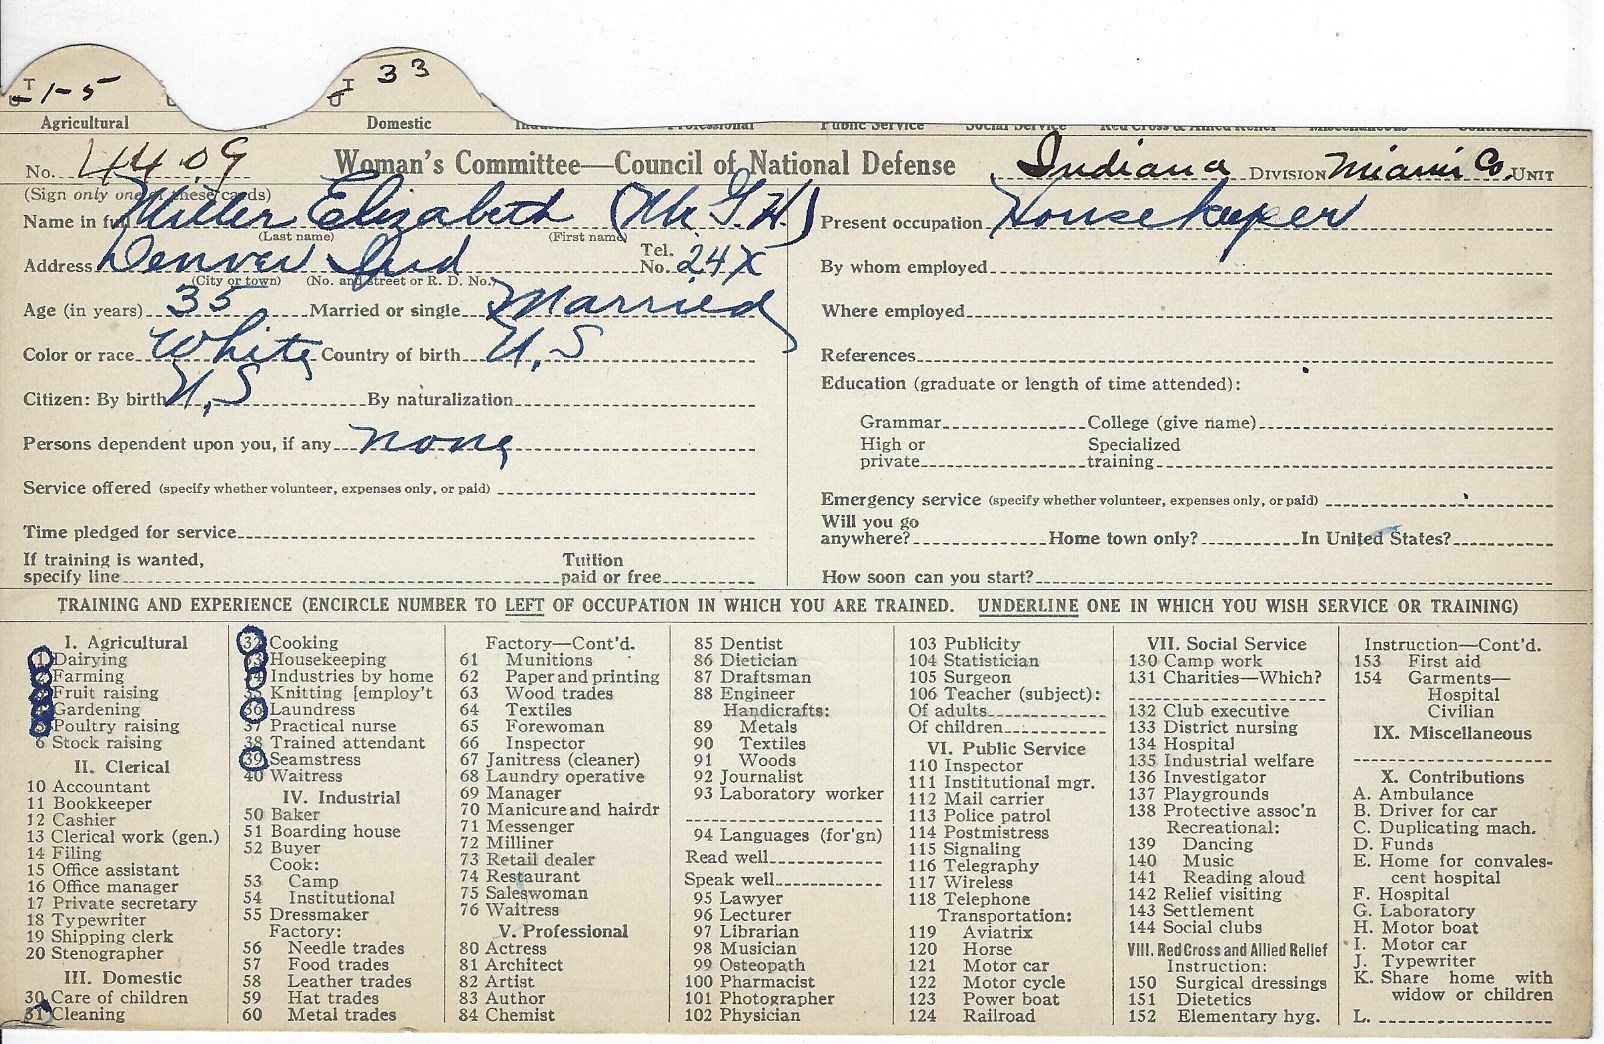 T U 1-5 T U 33
Agricultural Domestic Professional Public Service Social Service Red Cross & Allied Relief Miscellaneous
No. 4409 Woman's Committee—Council of National Defense Indiana DIVISION Miami Co. UNIT
(Sign only one of these cards)
Name in full Miller Elizabeth (Mr G.H.) Present occupation Housekeeper
(Last name) (First name)
Address Denver Ind Tel. No. 24X By whom employed
(City or town) (No. and street or R. D. No.)
Age (in years) 35 Married or single Married Where employed
Color or race White Country of birth U.S References
Citizen: By birth U.S By naturalization Education (graduate or length of time attended):
Grammar College (give name)
Persons dependent upon you, if any none High or private Specialized training
Service offered (specify whether volunteer, expenses only, or paid) Emergency service (specify whether volunteer, expenses only, or paid)
Time pledged for service Will you go anywhere? Home town only? In United States?
If training is wanted, specify line Tuition paid or free How soon can you start?
TRAINING AND EXPERIENCE (ENCIRCLE NUMBER TO LEFT OF OCCUPATION IN WHICH YOU ARE TRAINED. UNDERLINE ONE IN WHICH YOU WISH SERVICE OR TRAINING)
I. Agricultural
1 Dairying
2 Farming
3 Fruit raising
4 Gardening
5 Poultry raising
6 Stock raising
II. Clerical
10 Accountant
11 Bookkeeper
12 Cashier
13 Clerical work (gen.)
14 Filing
15 Office assistant
16 Office manager
17 Private secretary
18 Typewriter
19 Shipping clerk
20 Stenographer
III. Domestic
30 Care of children
31 Cleaning
32 Cooking
33 Housekeeping
34 Industries by home
35 Knitting [employ't
36 Laundress
37 Practical nurse
38 Trained attendant
39 Seamstress
40 Waitress
IV. Industrial
50 Baker
51 Boarding house
52 Buyer
Cook:
53 Camp
54 Institutional
55 Dressmaker
Factory:
56 Needle trades
57 Food trades
58 Leather trades
59 Hat trades
60 Metal trades
Factory—Cont'd.
61 Munitions
62 Paper and printing
63 Wood trades
64 Textiles
65 Forewoman
66 Inspector
67 Janitress (cleaner)
68 Laundry operative
69 Manager
70 Manicure and hairdr
71 Messenger
72 Milliner
73 Retail dealer
74 Restaurant
75 Saleswoman
76 Waitress
V. Professional
80 Actress
81 Architect
82 Artist
83 Author
84 Chemist
85 Dentist
86 Dietician
87 Draftsman
88 Engineer
Handicrafts:
89 Metals
90 Textiles
91 Woods
92 Journalist
93 Laboratory worker
94 Languages (for'gn)
Read well
Speak well
95 Lawyer
96 Lecturer
97 Librarian
98 Musician
99 Osteopath
100 Pharmacist
101 Photographer
102 Physician
103 Publicity
104 Statistician
105 Surgeon
106 Teacher (subject):
Of adults
Of children
VI. Public Service
110 Inspector
111 Institutional mgr.
112 Mail carrier
113 Police patrol
114 Postmistress
115 Signaling
116 Telegraphy
117 Wireless
118 Telephone
Transportation:
119 Aviatrix
120 Horse
121 Motor car
122 Motor cycle
123 Power boat
124 Railroad
VII. Social Service
130 Camp work
131 Charities—Which?
132 Club executive
133 District nursing
134 Hospital
135 Industrial welfare
136 Investigator
137 Playgrounds
138 Protective assoc'n
Recreational:
139 Dancing
140 Music
141 Reading aloud
142 Relief visiting
143 Settlement
144 Social clubs
VIII. Red Cross and Allied Relief
Instruction:
150 Surgical dressings
151 Dietetics
152 Elementary hyg.
Instruction—Cont'd.
153 First aid
154 Garments—
Hospital
Civilian
IX. Miscellaneous
X. Contributions
A. Ambulance
B. Driver for car
C. Duplicating mach.
D. Funds
E. Home for convales-
cent hospital
F. Hospital
G. Laboratory
H. Motor boat
I. Motor car
J. Typewriter
K. Share home with
widow or children
L.